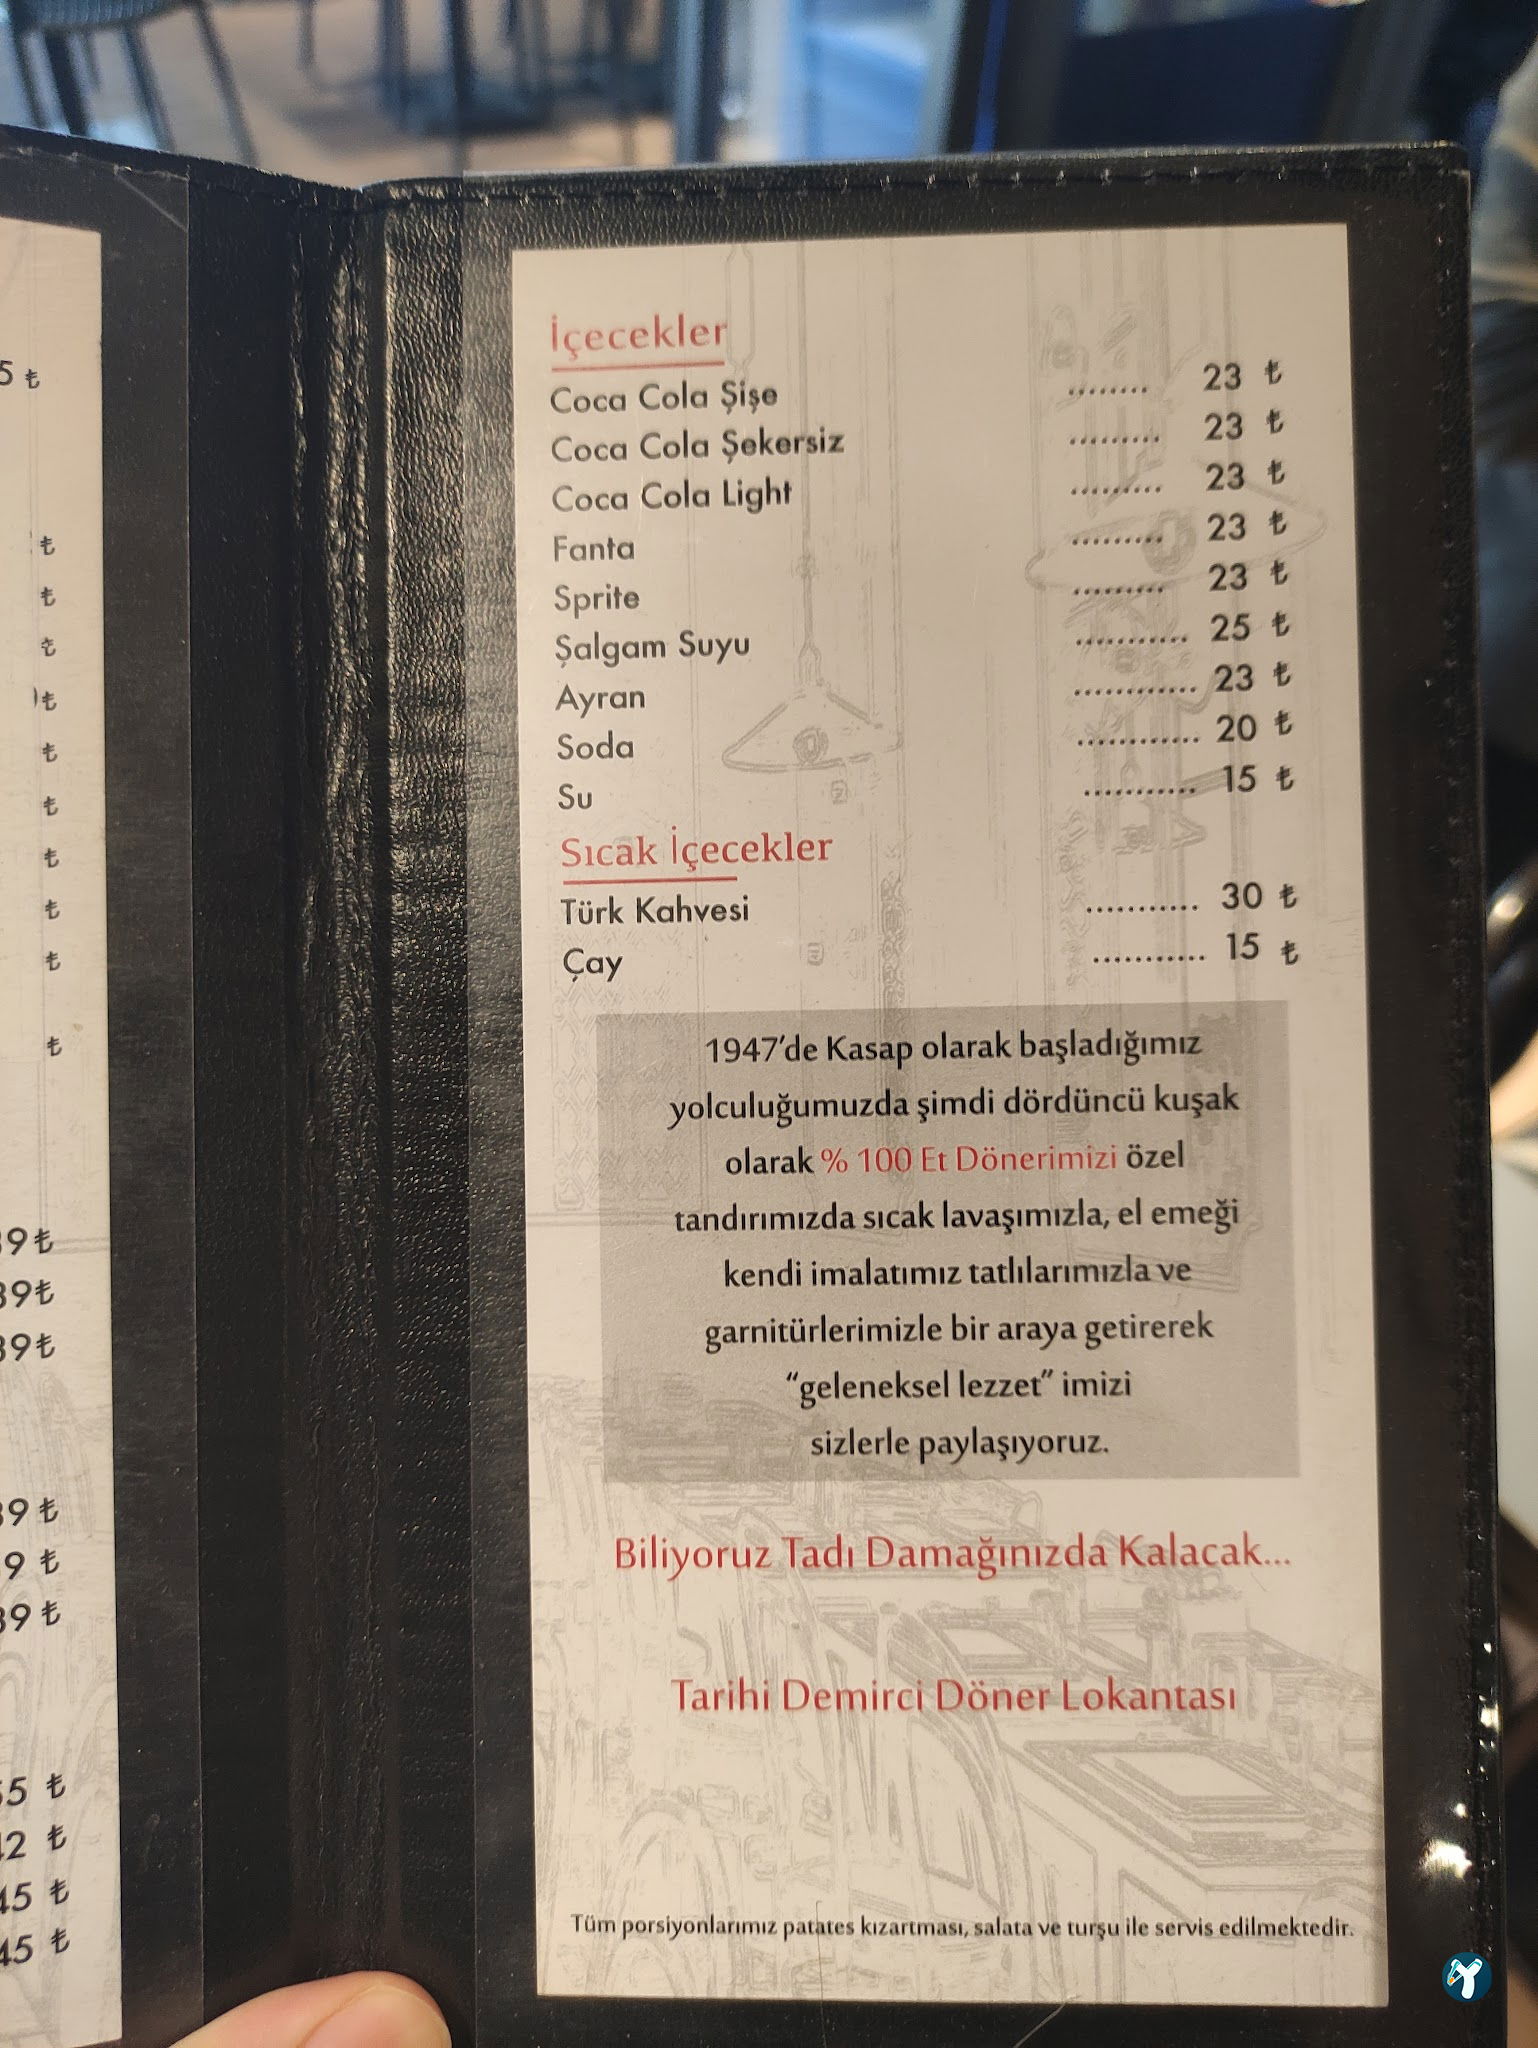 5 ₺
₺
₺
₺
₺
₺
₺
₺
₺
₺
₺
39 ₺
39 ₺
39 ₺
39 ₺
9 ₺
39 ₺
55 ₺
42 ₺
45 ₺
45 ₺
İçecekler
Coca Cola Şişe ........ 23 ₺
Coca Cola Şekersiz ......... 23 ₺
Coca Cola Light ......... 23 ₺
Fanta ......... 23 ₺
Sprite ......... 23 ₺
Şalgam Suyu ........... 25 ₺
Ayran ............ 23 ₺
Soda ............ 20 ₺
Su ........... 15 ₺
Sıcak İçecekler
Türk Kahvesi ........... 30 ₺
Çay ........... 15 ₺
1947'de Kasap olarak başladığımız
yolculuğumuzda şimdi dördüncü kuşak
olarak % 100 Et Dönerimizi özel
tandırımızda sıcak lavaşımızla, el emeği
kendi imalatımız tatlılarımızla ve
garnitürlerimizle bir araya getirerek
“geleneksel lezzet” imizi
sizlerle paylaşıyoruz.
Biliyoruz Tadı Damağınızda Kalacak...
Tarihi Demirci Döner Lokantası
Tüm porsiyonlarımız patates kızartması, salata ve turşu ile servis edilmektedir.